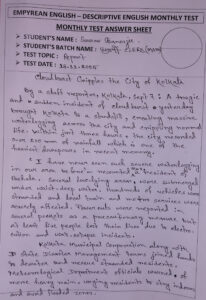 EMPYREAN ENGLISH – DESCRIPTIVE ENGLISH MONTHLY TEST
MONTHLY TEST ANSWER SHEET
➤ STUDENT'S NAME :
➤ STUDENT'S BATCH NAME :
➤ TEST TOPIC : Report
➤ TEST DATE :
Cloudburst Cripples the City of Kolkata
By a staff reporter, Kolkata, : A tragic
and sudden incident of cloudburst yesterday
brought Kolkata to a standstill, creating massive
waterlogging across the city and crippling normal
life. Within just three hours, the city recorded
over mm of rainfall which is one of the
heaviest downpours in recent memory.
"I have never seen such severe waterlogging
in our area before", a resident of
Several localities were submerged
under waist deep water, hundreds of vehicles
stranded and local train and metro services were
severely affected. Power cuts were reported in
several pockets as a precautionary measure but
at least five people lost their lives due to
and incidents.
Kolkata Municipal Corporation along with
State Disaster Management teams joined hands
to and rescue stranded residents.
Meteorological Department officials warned of
more heavy rain, urging residents to stay indoors
and avoid flooded zones.